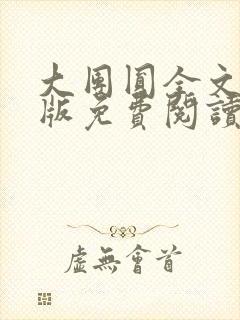 大團圓全文
版免費閱讀
虛無會首